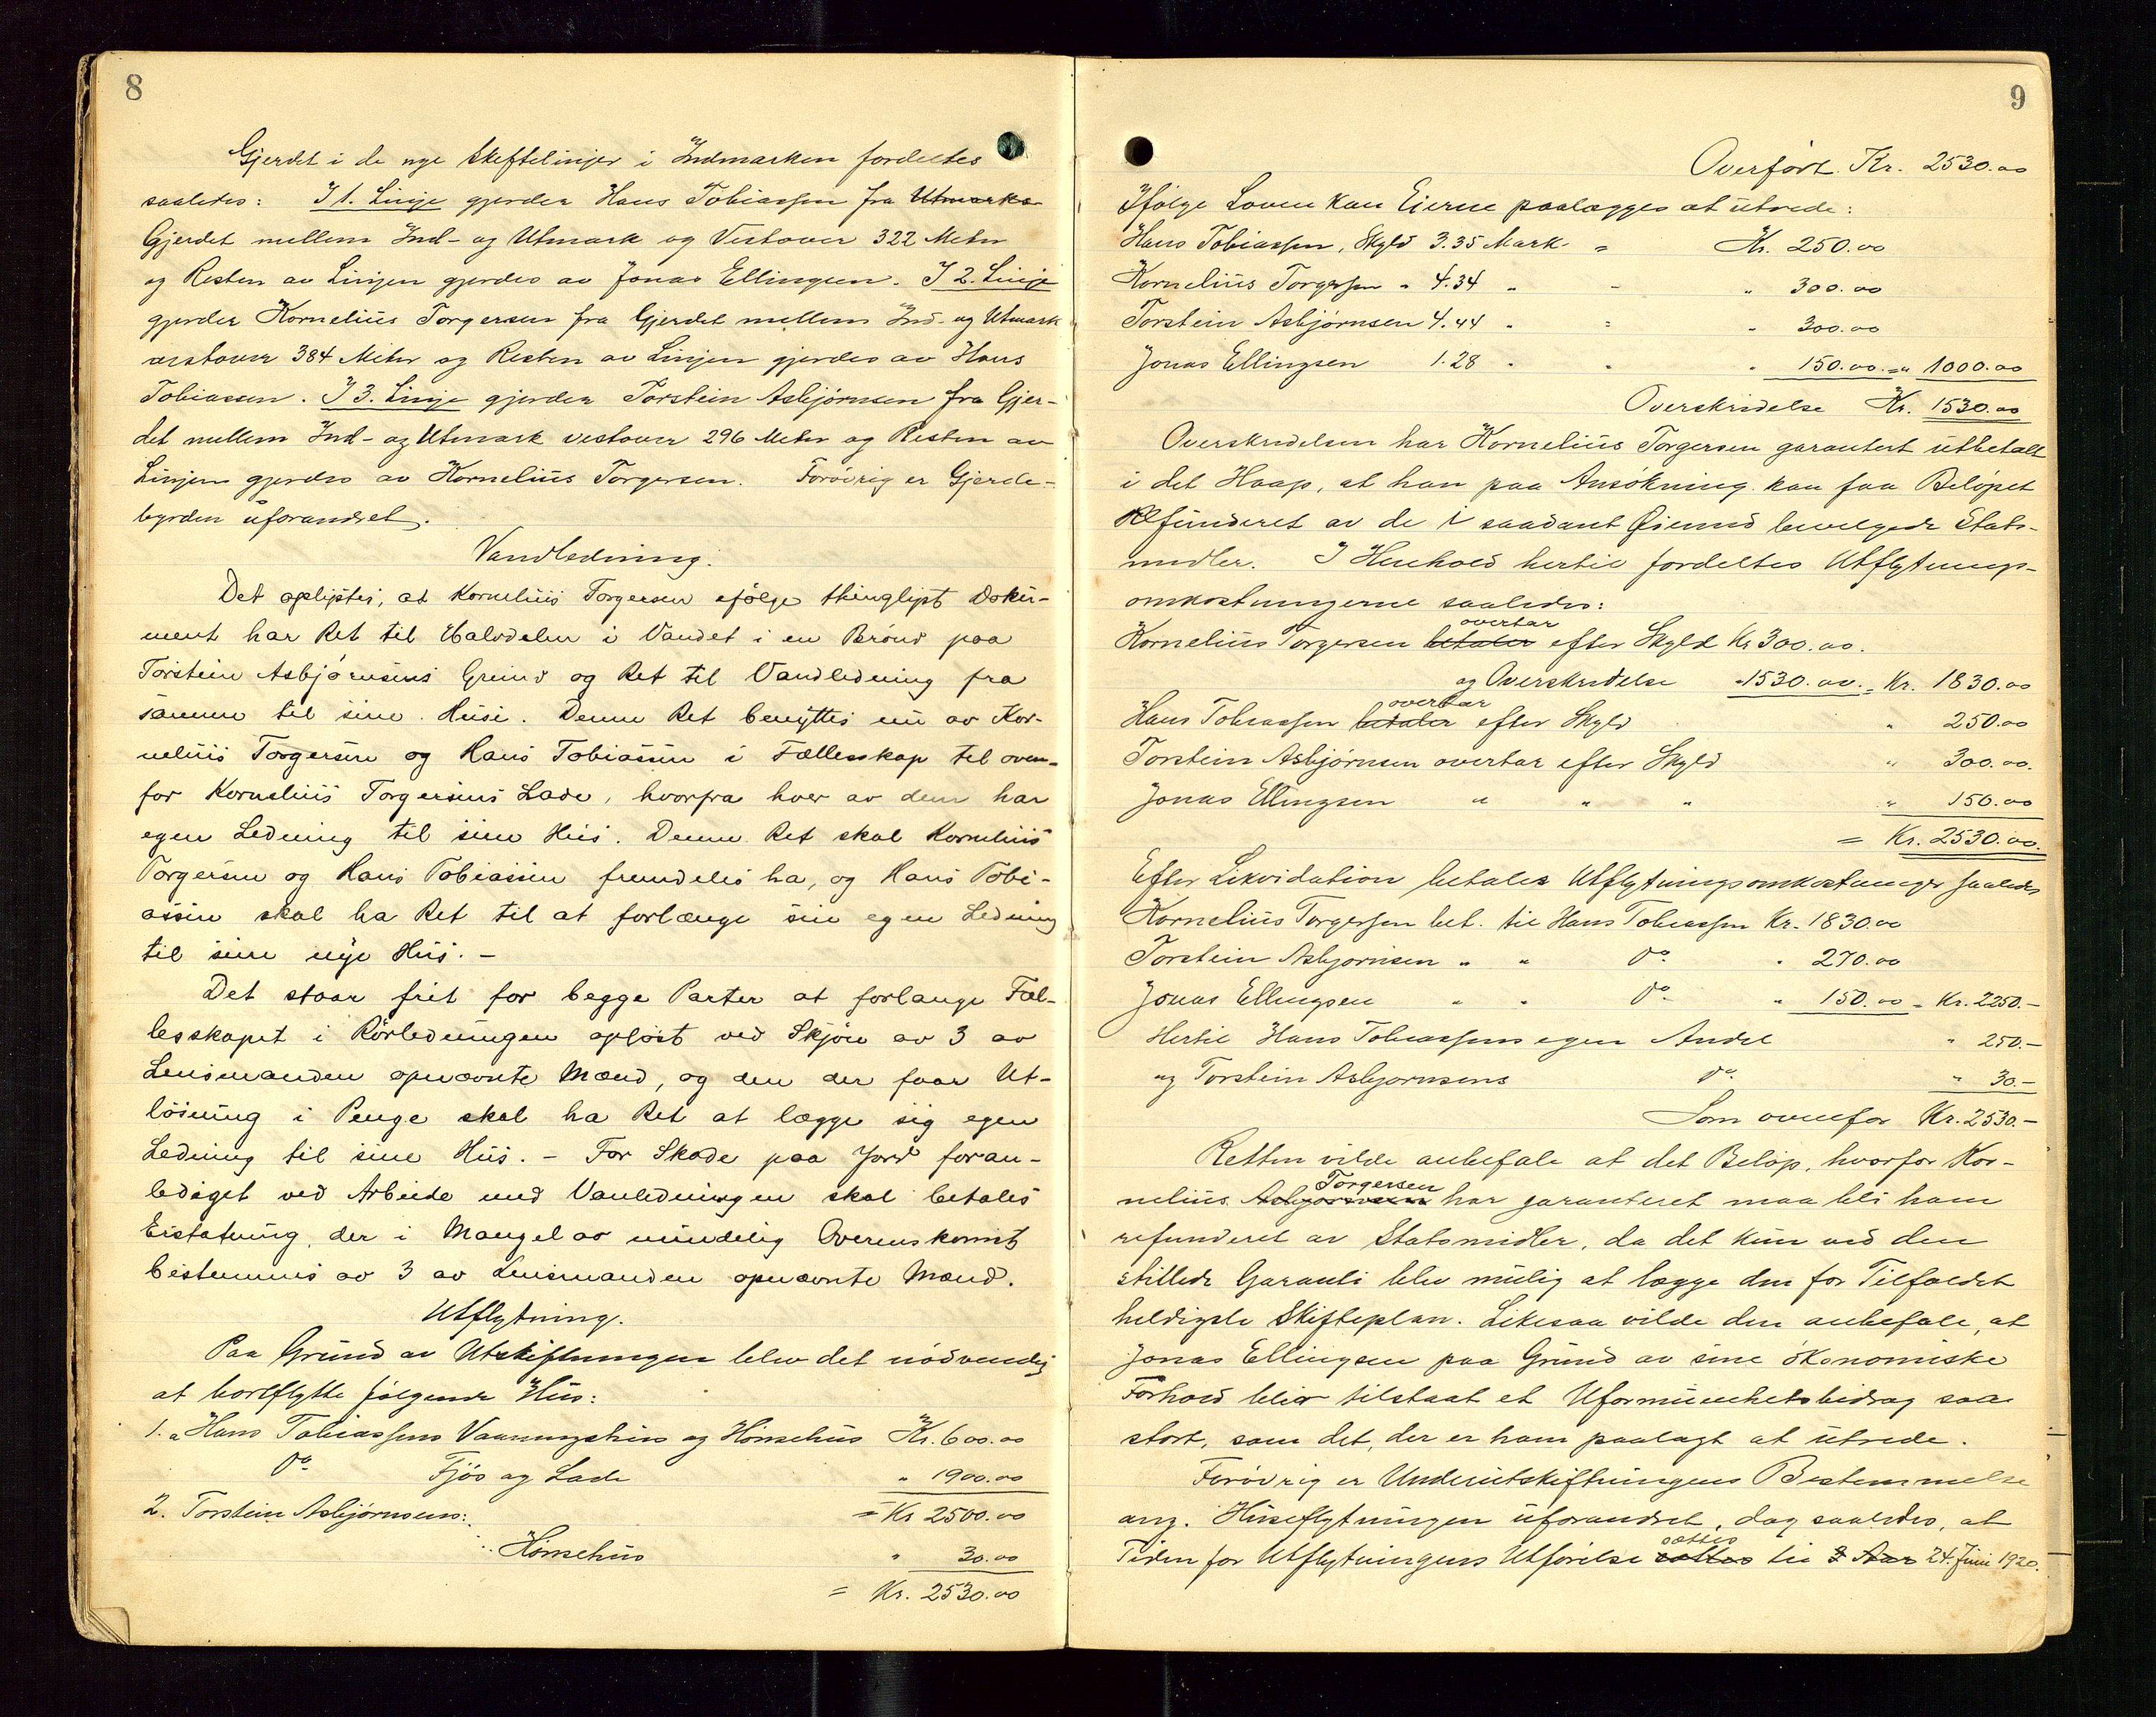 8
Gjerdet i de nye Skeftelinjer i Indmarken fordeltes
saaledes: I 1. Linje gjerder Hans Tobiassen fra Utmarks
Gjerdet mellem Ind- og Utmark og Vestover 322 Meter
og Resten av Linjen gjerdes av Jonas Ellingsen. I 2. Linje
gjerder Kornelius Torgersen fra Gjerdet mellem Ind- og Utmark
vestover 384 Meter og Resten av Linjen gjerdes av Hans
Tobiassen. I 3. Linje gjerder Torstein Asbjörnsen fra Gjer-
det mellem Ind- og Utmark vestover 296 Meter og Resten av
Linjen gjerdes av Kornelius Torgersen. Forövrig er Gjerde-
byrden uforandret.
Vandledning.
Det oplystes, at Kornelius Torgersen efölge thinglyst Doku-
ment har Ret til Halvdelen i Vandet i en Brönd paa
Torstein Asbjörnsens Grund og Ret til Vandledning fra
samme til sine Huse. Denne Ret benyttes nu av Kor-
nelius Torgersen og Hans Tobiassen i Fællesskap til oven-
for Kornelius Torgersens Lade, hvorfra hver av dem har
egen Ledning til sine Hus. Denne Ret skal Kornelius
Torgersen og Hans Tobiassen fremdeles ha, og Hans Tobi-
assen skal ha Ret til at forlænge sin egen Ledning
til sine nye Hus. -
Det staar frit for begge Parter at forlange Fæl-
lesskapet i Rörledningen oplöst ved Skjön av 3 av
Lensmanden opnævnte Mænd, og den der faar Ut-
lösning i Penge skal ha Ret at lægge sig egen
Ledning til sine Hus. - For Skade paa Jord foran-
lediget ved Arbeide med Vanledningen skal betales
Erstatning, der i Mangel av mindelig Overenskomst
bestemmes av 3 av Lensmanden opnævnte Mænd.
Utflytning.
Paa Grund av Utskiftningen blev det nödvendig
at bortflytte følgende Hus:
1. a Hans Tobiassens Vaaningshus og Hönsehus Kr. 600.00
Do Fjös og Lade " 1900.00
2. Torstein Asbjörnsens: = Kr 2500.00
Hönsehus " 30.00
= Kr. 2530.00
9
Overfört Kr. 2530.00
Ifølge Loven kan Eierne paalægges at utrede:
Hans Tobiassen, Skyld 3.35 Mark = Kr. 250.00
Kornelius Torgersen " 4.34 " - " 300.00
Torstein Asbjörnsen 4.44 " = " 300.00
Jonas Ellingsen 1.28 " " " 150.00 = " 1000.00
Overskridelse Kr. 1530.00
Overskridelsen har Kornelius Torgersen garantert utbetalt
i det Haap, at han paa Ansökning kan faa Belöpet
refunderet av de i saadant Øiemed bevilgede Stats-
midler. I Henhold hertil fordeltes Utflytnings-
omkostningerne saaledes:
overtar
Kornelius Torgersen betaler efter Skyld Kr 300.00.
og Overskridelse " 1530.00. = Kr. 1830.00
overtar
Hans Tobiassen betaler efter Skyld " 250.00
Torstein Asbjörnsen overtar efter Skyld " 300.00.
Jonas Ellingsen " " " " 150.00
= Kr. 2530.00.
Efter Likvidation betales Utflytningsomkostninger saaledes
Kornelius Torgersen bet. til Hans Tobiassen Kr. 1830.00
Torstein Asbjornsen " " Do " 270.00
Jonas Ellingsen " " Do " 150.00 = Kr. 2250.-
Hertil Hans Tobiassens egen Andel " 250.-
og Torstein Asbjornsens Do " 30.-
Som ovenfor Kr. 2530.-
Retten vilde anbefale at det Belöp, hvorfor Kor-
Torgersen
nelius Asbjörnsen har garanteret maa bli ham
refunderet av Statsmidler, da det kun ved den
stillede Garanti blev mulig at lægge den for Tilfældet
heldigste Skifteplan. Likesaa vilde den anbefale, at
Jonas Ellingsen paa Grund av sine ökonomiske
Forhold blir tilstaat et Uformuenhetsbidrag saa
stort, som det, der er ham paalagt at utrede.
Forövrig er Underutskiftningens Bestemmelse
ang. Huseflytningen uforandret, dog saaledes, at
sættes
Tiden for Utflytningens Utförelse sættes til 2 Aar 24. Juni 1920.